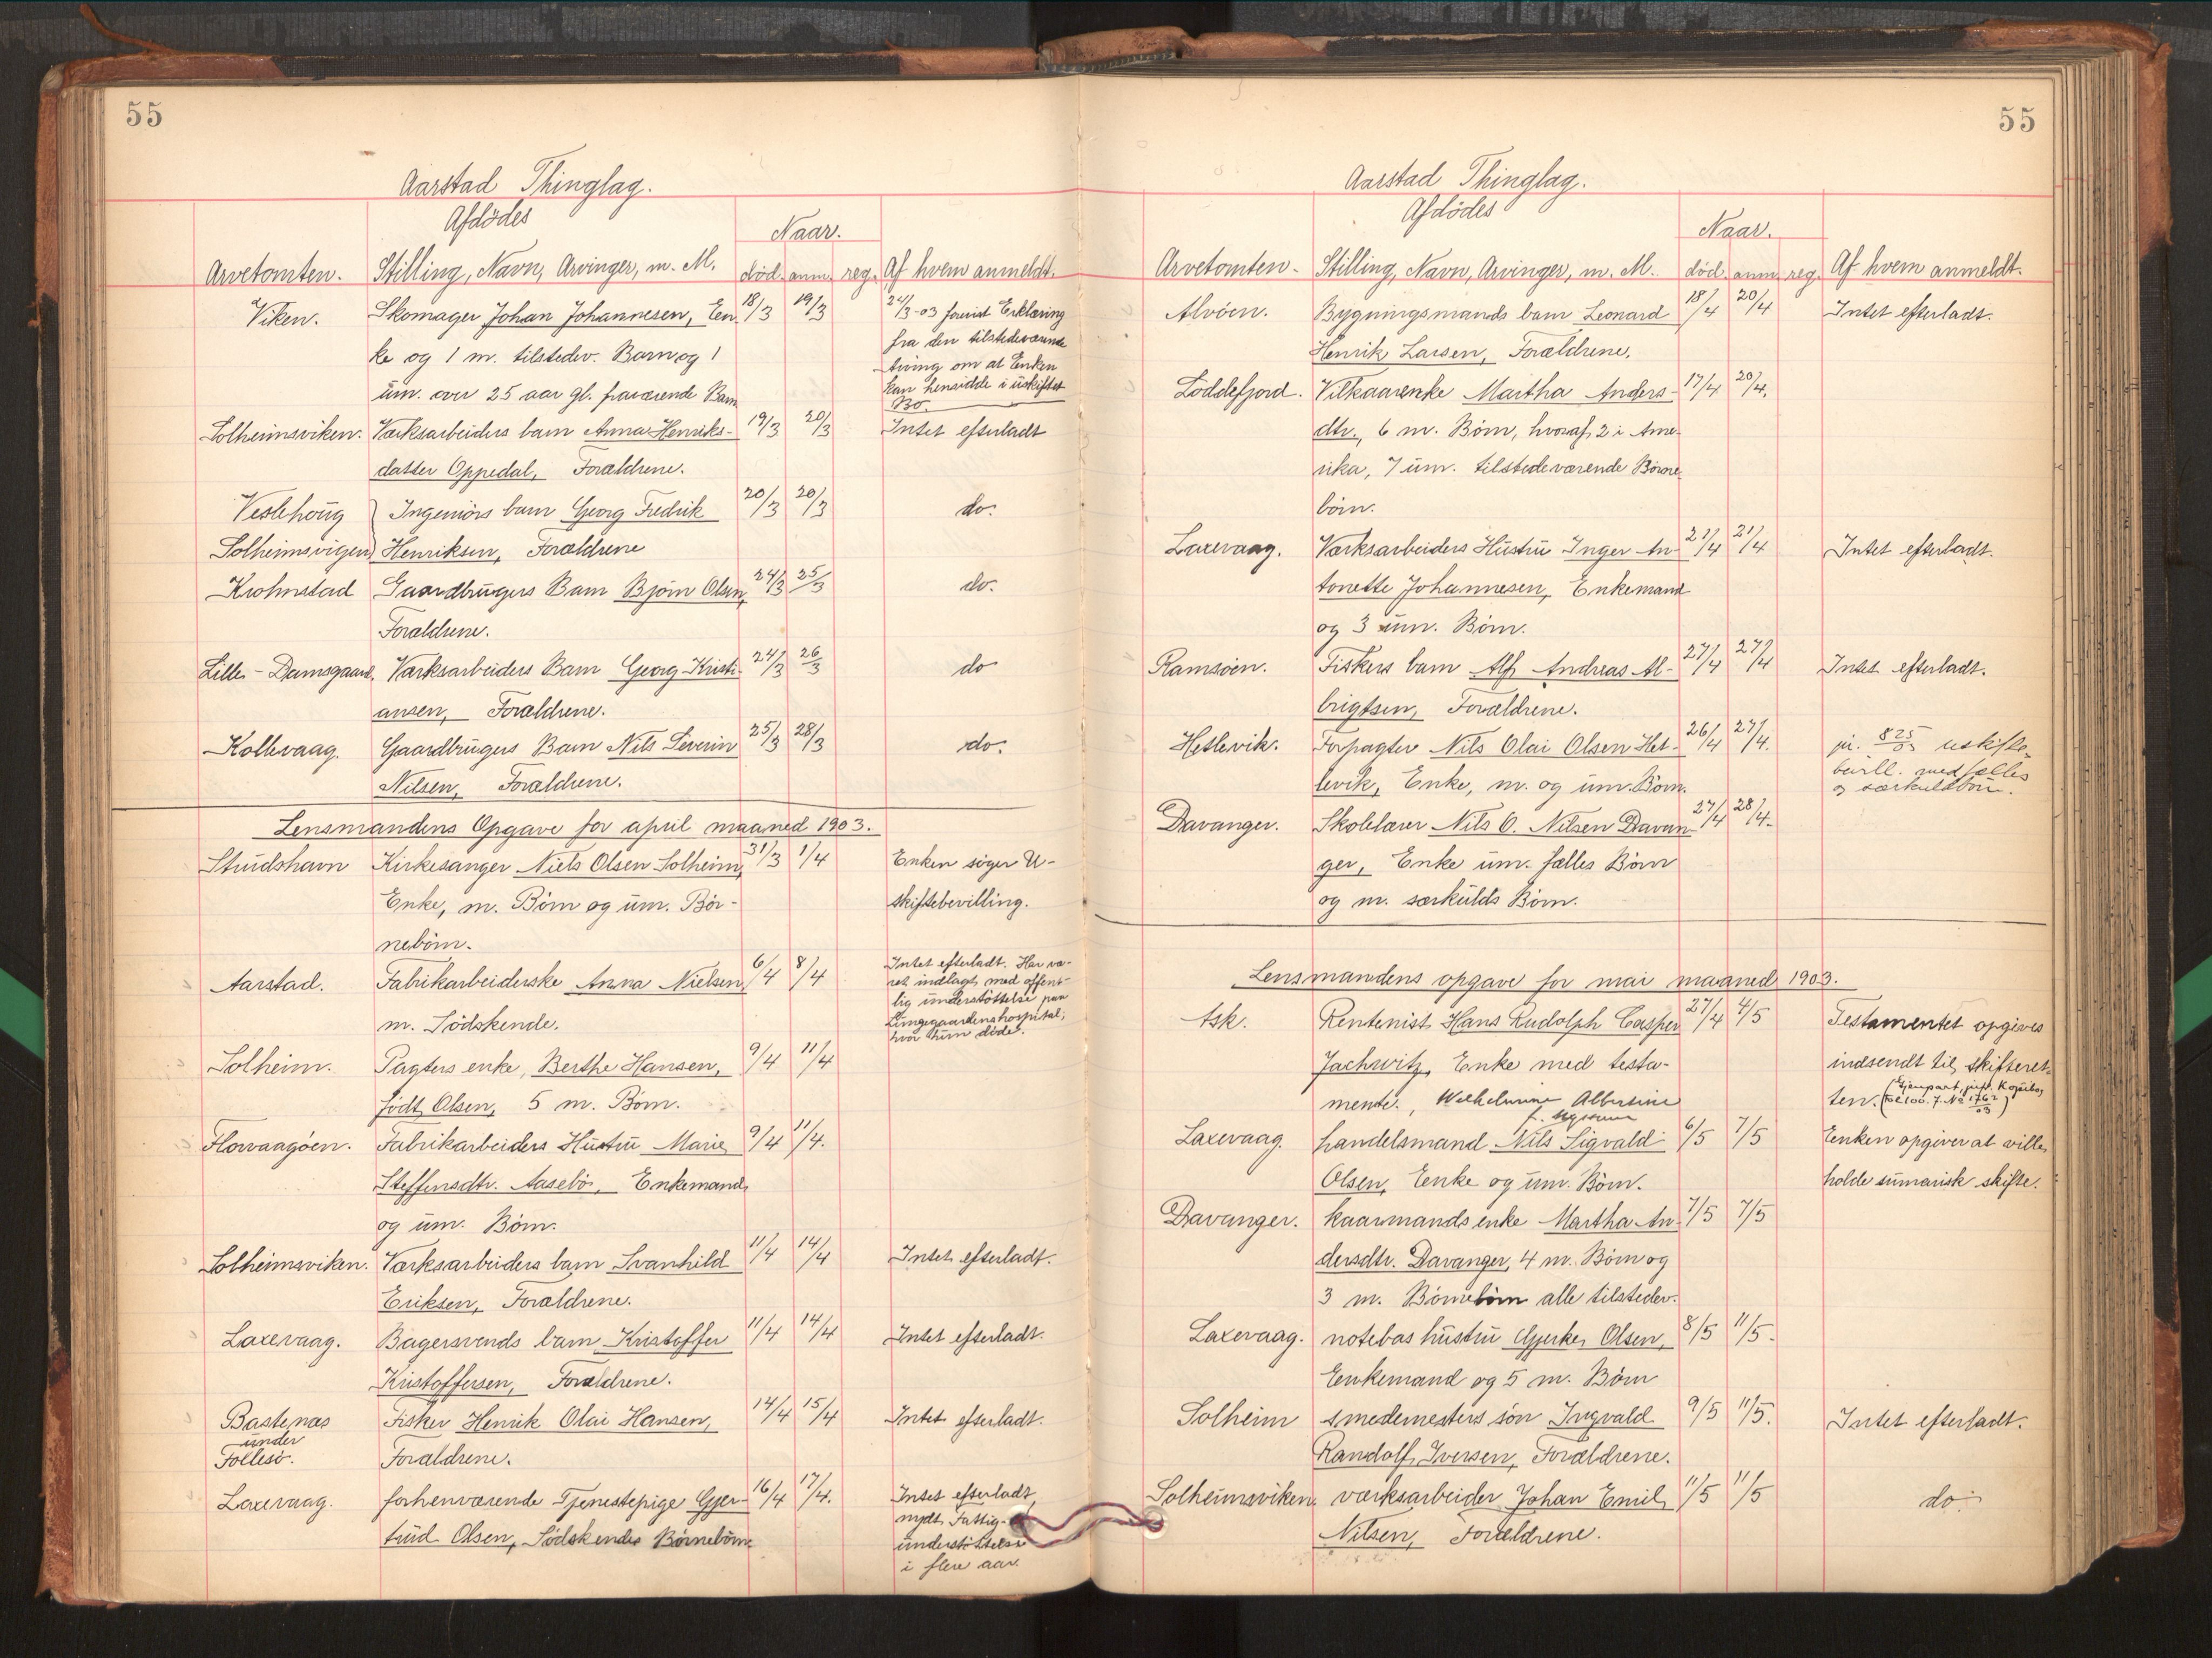 55
Aarstad Thinglag.
Afdödes
Naar.
Arvetomten. Stilling, Navn, Arvinger, m. M. död. anm. reg. Af hvem anmeldt.
Viken. Skomager Johan Johannesen, En- 18/3 19/3 24/3-03 forevist Erklæring
ke og 1 m. tilstedev. Barn og 1 fra den tilstedeværende
um. over 25 aar gl. fraværende Barn Arving om at Enken
kan hensidde i uskiftet
Bo.
Solheimsviken. Værksarbeiders barn Anna Henriks- 19/3 20/3 Intet efterladt
datter Oppedal, Forældrene.
Veslehoug Ingeniörs barn Georg Fredrik 20/3 20/3 do.
Solheimsvigen Henriksen, Forældrene
Krohnstad Gaardbrugers Barn Björn Olsen, 24/3 25/3 do.
Forældrene.
Lille-Damsgaard. Værksarbeiders Barn Georg Kristi- 24/3 26/3 do
ansen, Forældrene.
Kollevaag. Gaardbrugers Barn Nils Severin 25/3 28/3 do.
Nilsen, Forældrene.
Lensmandens Opgave for april maaned 1903.
Studshavn Kirkesanger Niels Olsen Solheim, 31/3 1/4 Enken söger U-
Enke, m. Börn og um. Bör- skiftebevilling.
nebörn.
Aarstad. Fabrikarbeiderske Anna Nielsen, 6/4 8/4 Intet efterladt. Har væ-
ret indlagt med offent-
lig understöttelse paa
m. Södskende. Lungegaardenshospital,
hvor hun döde.
Solheim. Pagters enke, Berthe Hansen, 9/4 11/4
födt Olsen, 5 m. Börn.
Florvaagöen. Fabrikarbeiders Hustru Marie 9/4 11/4.
Steffensdtr. Aasebö, Enkemand
og um. Börn.
Solheimsviken. Værksarbeiders barn Svanhild 11/4 14/4 Intet efterladt.
Eriksen, Forældrene.
Laxevaag. Bagersvends barn Kristoffer 11/4 14/4 Intet efterladt.
Kristoffersen, Forældrene.
Bastenæs Fisker Henrik Olai Hansen, 14/4 15/4 Intet efterladt.
under
Follesö. Forældrene.
Laxevaag. forhenværende Tjenestepige Gjer- 16/4 17/4. Intet efterladt,
nydt Fattig-
trud Olsen, Södskendes Börnebörn. understöttelse
i flere aar.
55
Aarstad Thinglag.
Afdödes
Naar.
Arvetomten. Stilling, Navn, Arvinger, m. M. död. anm. reg. Af hvem anmeldt.
Alvöen. Bygningsmands barn Leonard 18/4 20/4 Intet efterladt.
Henrik Larsen, Forældrene.
Löddefjord. Vilkaarsenke Martha Anders- 17/4 20/4.
dtr., 6 m. Börn, hvoraf 2 i Ame-
rika, 7 um. tilstedeværende Börne-
börn.
Laxevaag. Værksarbeiders Hustru Inger An- 21/4 21/4 Intet efterladt.
tonette Johannesen, Enkemand
og 3 um. Börn.
Ramsöen. Fiskers barn Alf Andreas Al- 27/4 27/4 Intet efterladt.
brigtsen, Forældrene.
Hetlevik. Forpagter Nils Olai Olsen Het- 26/4 27/4. jr. 825/03 uskifte-
levik, Enke, m. og um. Börn. bevill. med fælles
og særkuldbörn.
Davanger. Skolelærer Nils O. Nilsen Davan- 27/4 28/4.
ger, Enke um. fælles Börn
og m. særkulds Börn.
Lensmandens opgave for mai maaned 1903.
Ask. Rentenist Hans Rudolph Casper 27/4 4/5 Testamentet opgives
Jachwitz, Enke med testa- indsendt til skifteret-
mente., Wilhelmine Albertine ten. (Gjenpart, jvfr. Kopibog
Fol 100. J. No 1762/03)
Laxevaag. handelsmand Nils Sigvald 6/5 7/5 Eenken opgiver at ville
Olsen, Eenke og um. Börn. holde sumarisk skifte.
Davanger. kaarmands enke Martha An- 7/5 7/5
dersdtr. Davanger, 4 m. Börn og
3 m. Börnebörn alle tilstedev.
Laxevaag. notebas hustru Gjerke Olsen, 8/5 11/5.
Eenkemand og 5 m. Börn
Solheim smedemesters sön Ingvald 9/5 11/5. Intet efterladt.
Randolf Iversen, Forældrene.
Solheimsviken. værksarbeider Johan Emil 11/5 11/5 do.
Nilsen, Forældrene.